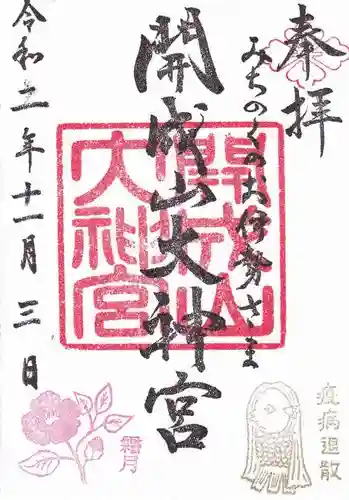 奉拝
みちのくのお伊勢さま
開成山大神宮
開成山
大神宮
令和五年十一月三日
疫病退散
霜月